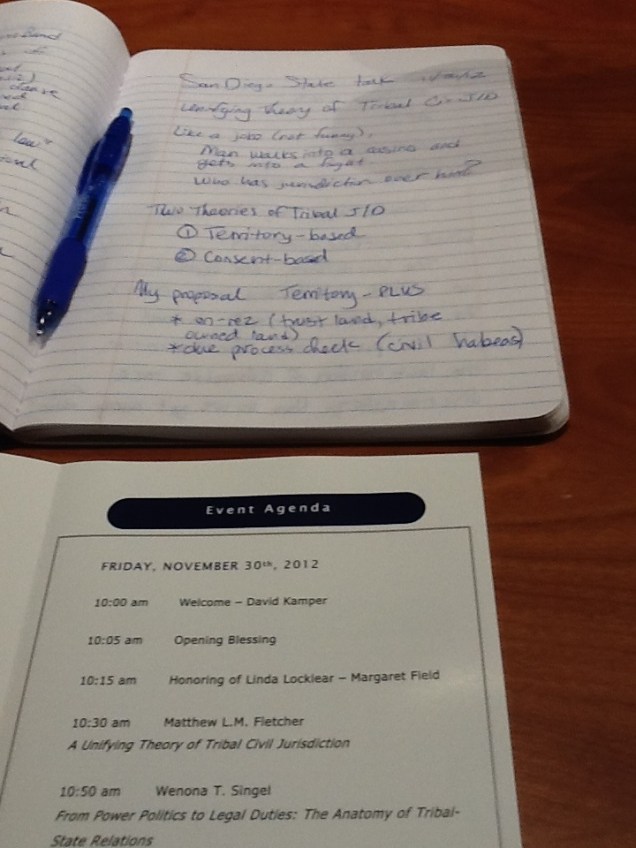 San Diego State talk
Unifying theory of Tribal Civ J/D
Like a joke (not funny).
Man walks into a casino and
gets into a fight
Who has jurisdiction over him?
Two Theories of Tribal J/D
① Territory-based
② Consent-based
My proposal Territory-PLUS
* on-rez (trust land, tribe
owned land)
* due process check (civil habeas)
law"
Event Agenda
FRIDAY, NOVEMBER 30th, 2012
10:00 am Welcome – David Kamper
10:05 am Opening Blessing
10:15 am Honoring of Linda Locklear – Margaret Field
10:30 am Matthew L.M. Fletcher
A Unifying Theory of Tribal Civil Jurisdiction
10:50 am Wenona T. Singel
From Power Politics to Legal Duties: The Anatomy of Tribal-
State Relations